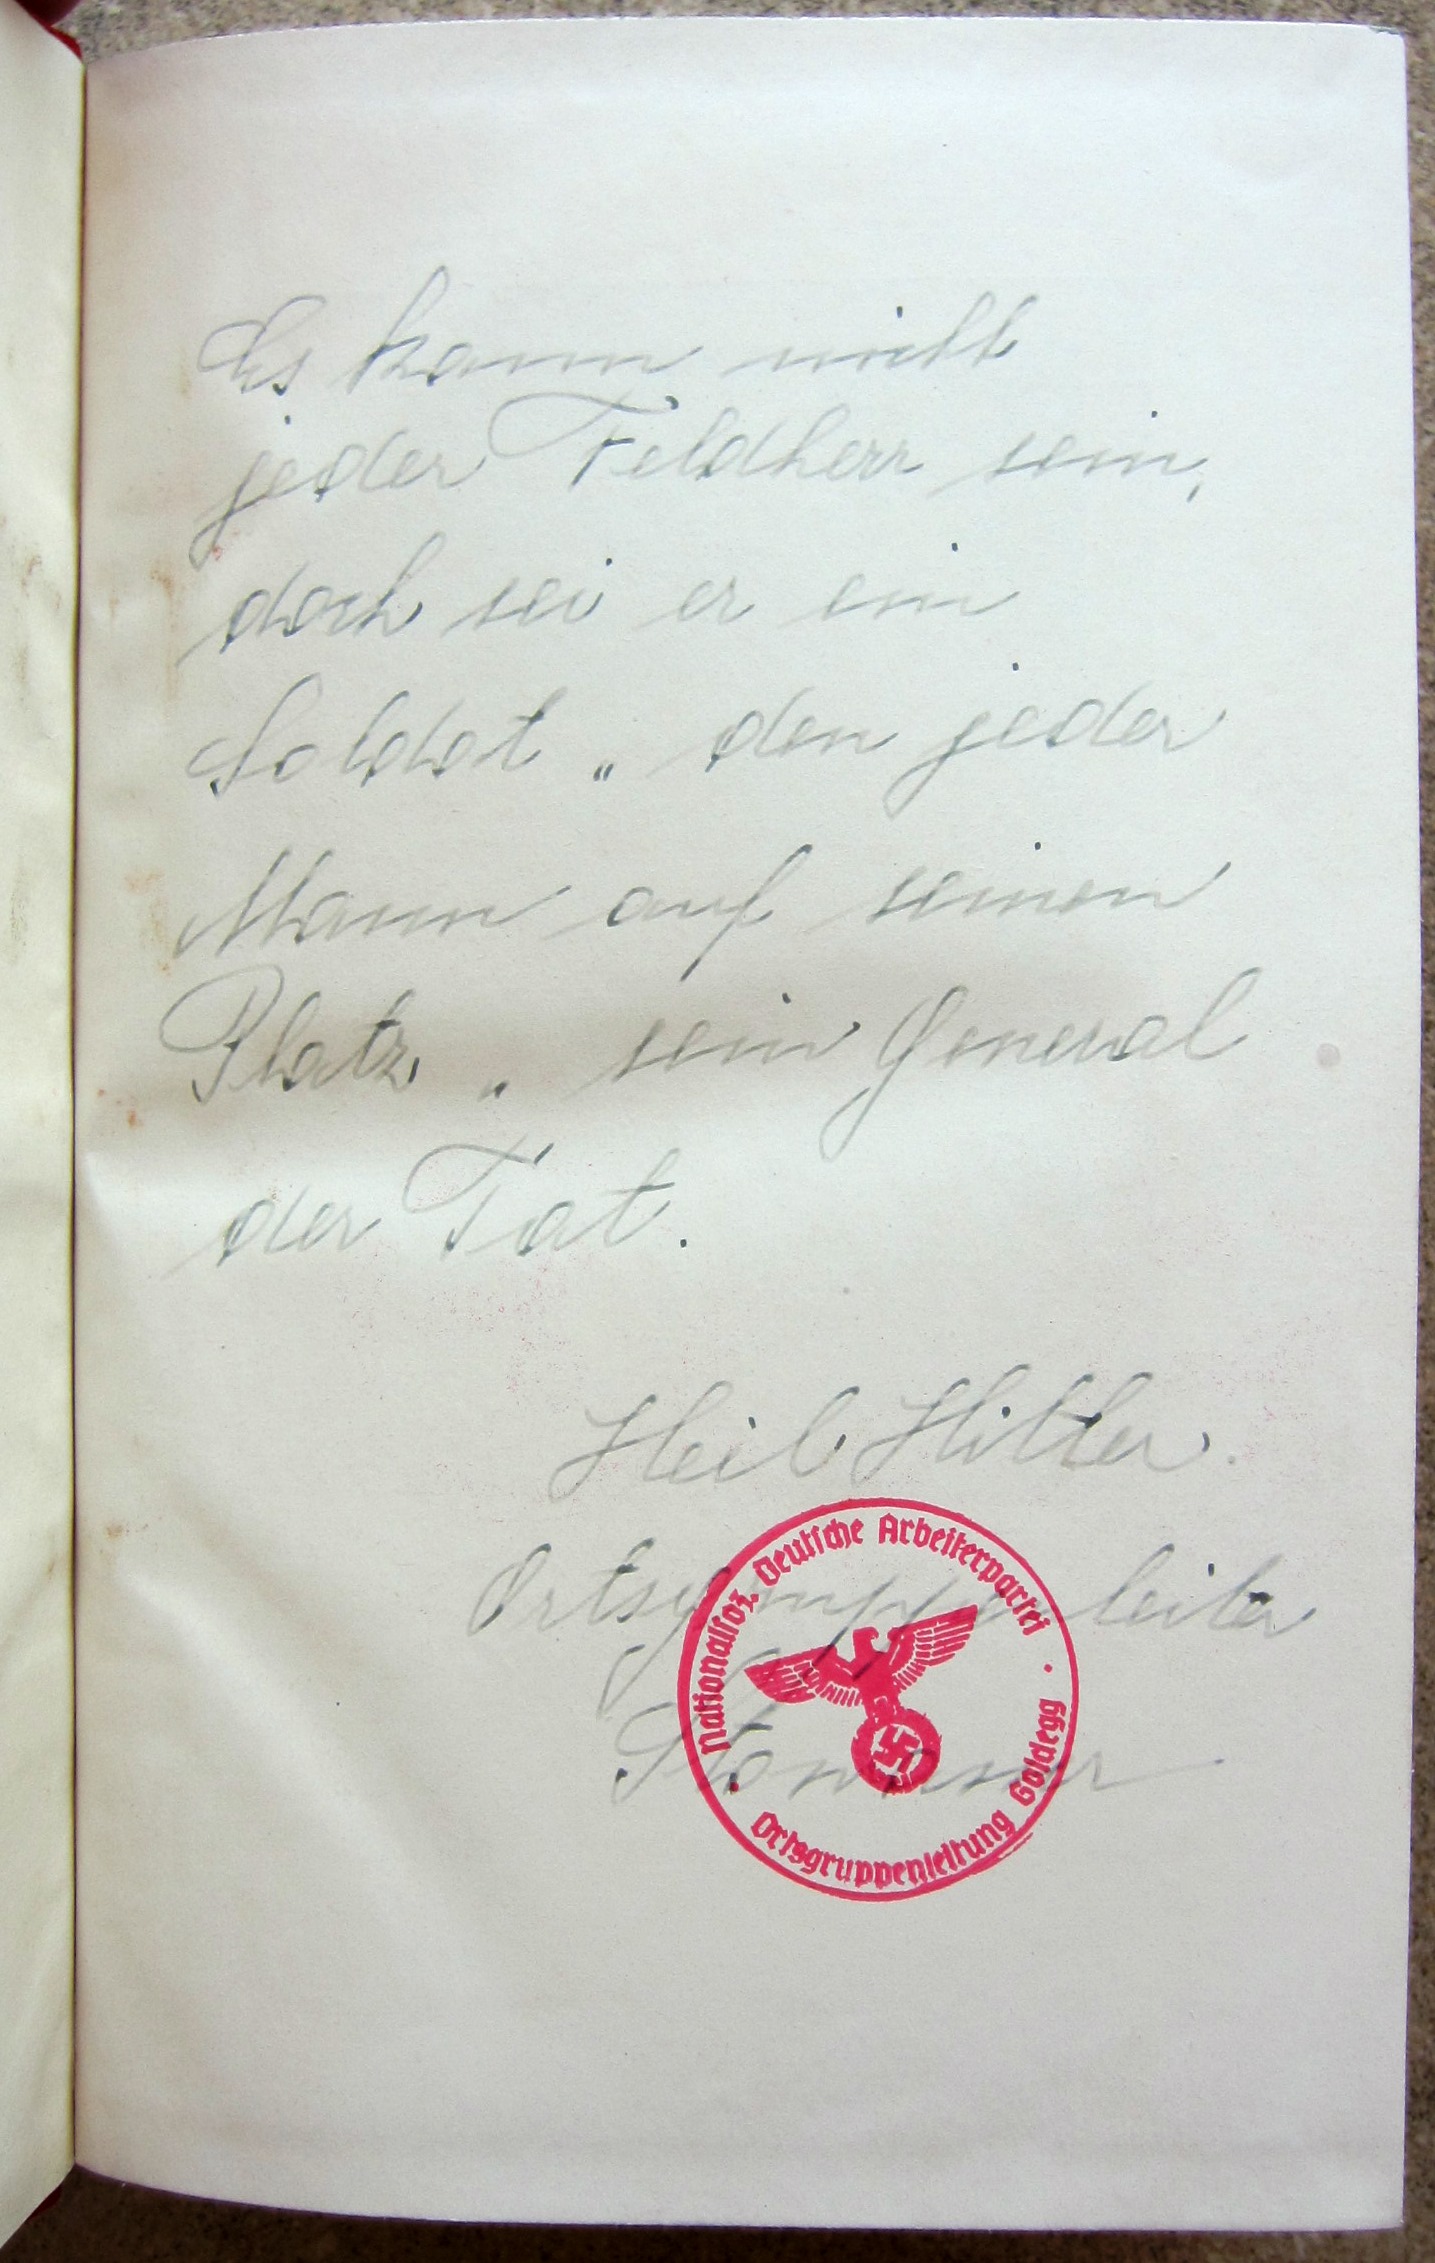 Es kann nicht
jeder Feldherr sein,
doch sei er ein
Soldat „ den jeder
Mann auf seinen
Platz „ sein General
der Tat.
Heil Hitler.
Ortsgruppenleiter
Nationalsoz. Deutsche Arbeiterpartei
Ortsgruppenleitung Goldegg